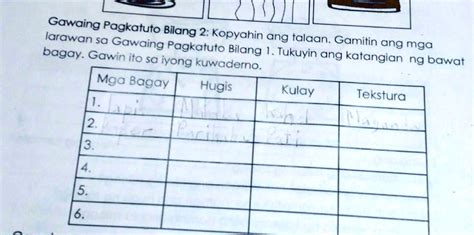 Gawaing Pagkatuto Bilang 2: Kopyahin ang talaan. Gamitin ang mga
larawan sa Gawaing Pagkatuto Bilang 1. Tukuyin ang katangian ng bawat
bagay. Gawin ito sa iyong kuwaderno.
Mga Bagay Hugis Kulay Tekstura
1. lapis
2.
3.
4.
5.
6.